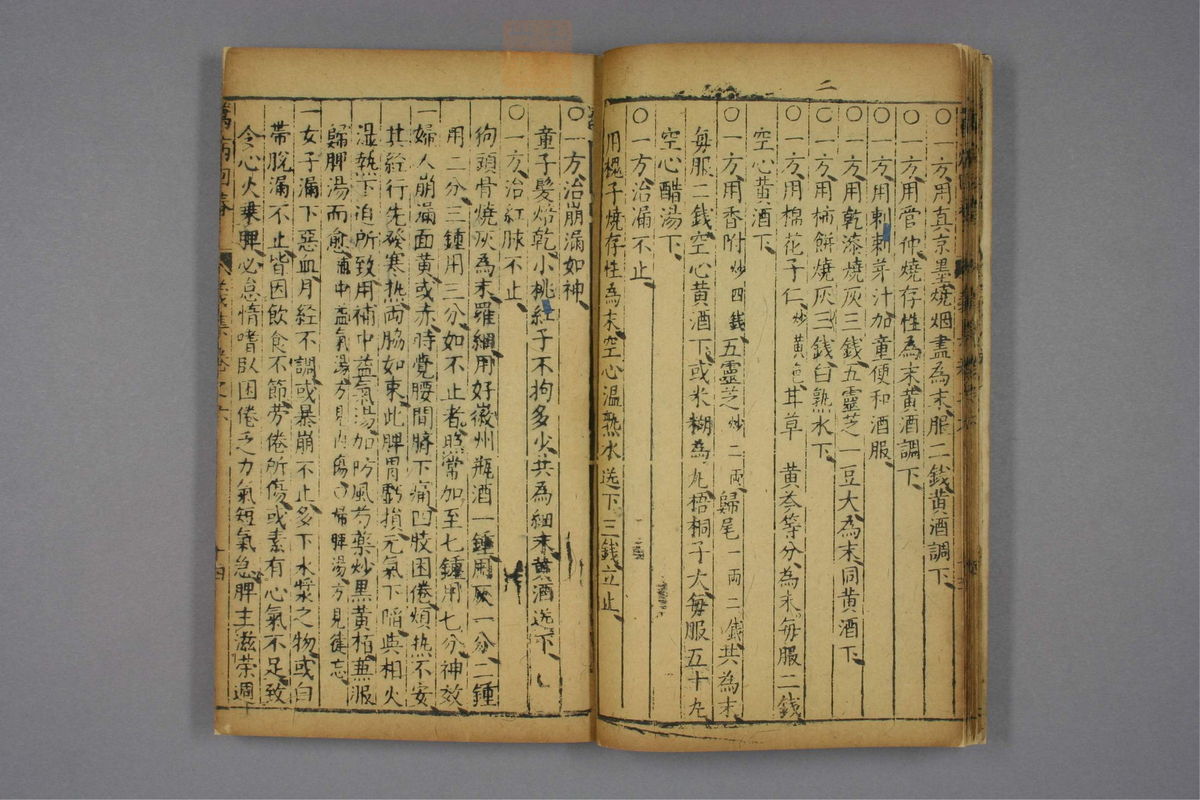 二
○一方用真京墨燒烟盡為末服二錢黃酒調下
○一方用管仲燒存性為末黃酒調下
○一方用刺刺芽汁加童便和酒服
○一方用乾漆燒灰三錢五靈芝一豆大為末同黃酒下
○一方用柿餅燒灰三錢白熟水下
○一方用棉花子仁炒黃色甘草 黃芩等分為末每服二錢
空心黃酒下
○一方用香附炒四錢五靈芝炒二兩歸尾一兩二錢共為末
每服二錢空心黃酒下或米糊為丸梧桐子大每服五十丸
空心醋湯下
○一方治漏不止
用槐子燒存性為末空心溫熱水送下三錢立止
○一方治崩漏如神
童子髮焙乾小桃紅子不狗多少共為細末黃酒送下
○一方治紅脉不止
狗頭骨燒灰為末羅細用好徽州瓶酒一鍾用灰一分二鍾
用二分三鍾用三分如不止者照常加至七鍾用七分神效
一婦人崩漏面黃或赤時覺腰間臍下痛四肢困倦煩热不安
其經行先發寒热兩脇如束此脾胃虧損元氣下陷與相火
湿热下迫所致用補中益氣湯加防風芍藥炒黑黃栢兼服
歸脾湯而愈補中益氣湯方見內傷歸脾湯方見健忘
一女子漏下惡血月經不調或暴崩不止多下水漿之物或白
帶脫漏不止皆因飲食不節劳倦所傷或素有心氣不足致
令心火乗脾必怠惰嗜臥困倦乏力氣短氣急脾主滋荣週
萬病回春 義集卷之六 十四